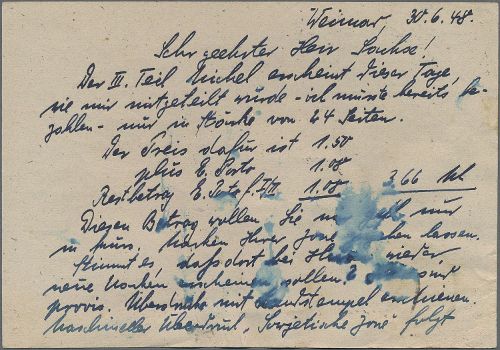 Weimar, 30.6.48.
Sehr geehrter Herr Sachse!
Der III. Teil Michel erscheint dieser Tage,
wie mir mitgeteilt wurde - ich musste bereits be-
zahlen - nur in Stärke von 64 Seiten.
Der Preis dafür ist 1.50
plus E. Porto 1.08
Restbetrag E. Porto f. I/II 1.08 3.66 M
Diesen Betrag wollen Sie mir nur
in Marken Ihrer Zone lassen.
Stimmt es, dass dort bei Ihnen wieder
neue Marken erscheinen sollen?
provis. Überdrucke mit Handstempel erschienen.
Maschineller Überdruck "Sowjetische Zone" folgt